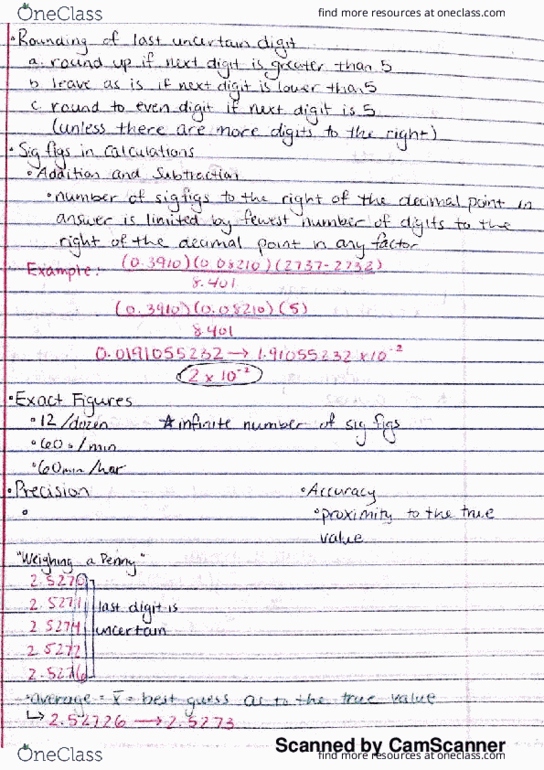 OneClass
find more resources at oneclass.com
•Rounding of last uncertain digit
a. round up if next digit is greater than 5
b leave as is if next digit is lower than 5
c. round to even digit if next digit is 5
(unless there are more digits to the right)
•Sig figs in Calculations
•Addition and Subtraction
•number of sigfigs to the right of the decimal point in
answer is limited by fewest number of digits to the
right of the decimal point in any factor
Example: (0.3910)(0.08210)(2737-2732)
8.401
(0.3910)(0.08210)(5)
8.401
0.0191055232 → 1.91055232 x10⁻²
2 x 10⁻²
•Exact Figures
•12/dozen ☆infinite number of sig figs
•60 s/min
•60min/hour
•Precision •Accuracy
•proximity to the true
value
"Weighing a Penny"
2.5270
2.5271 last digit is
2.5274 uncertain
2.5272
2.5276
•average = x̄ = best guess as to the true value
↳ 2.52726 → 2.5273
Scanned by CamScanner
OneClass
find more resources at oneclass.com